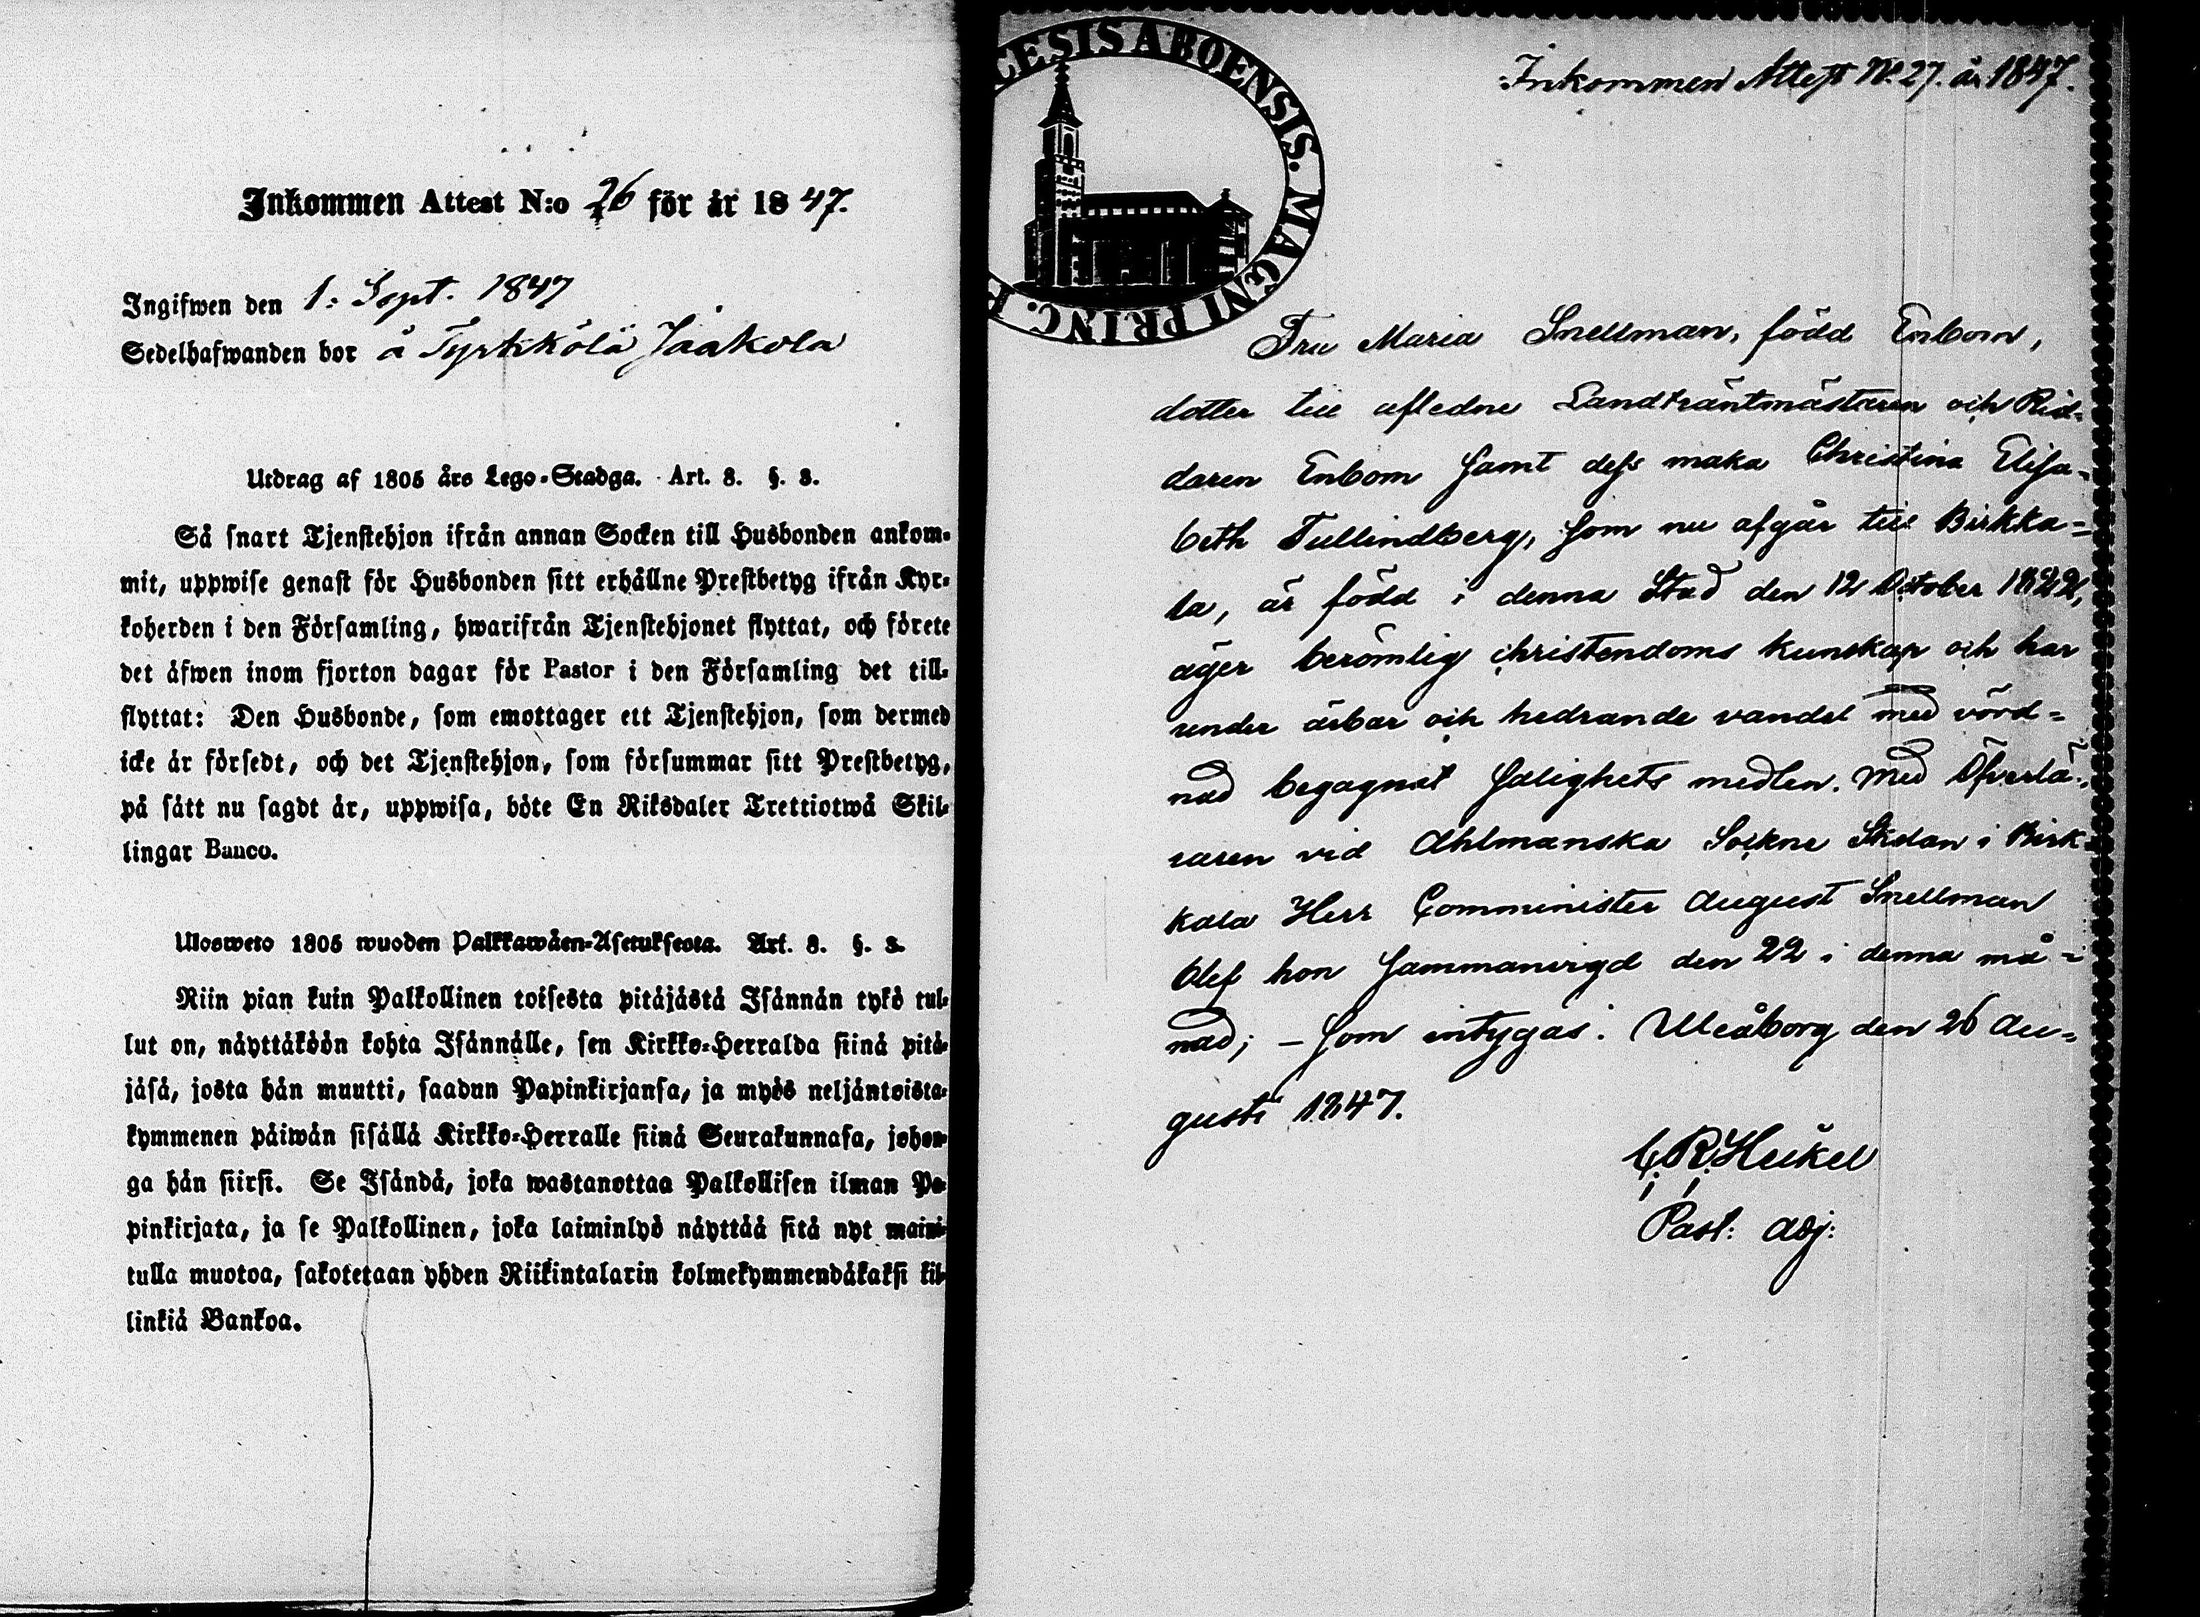 Inkommen Attest N:o 26 för år 1847.
Ingifwen den 1. Sept. 1847
Sedelhafwanden bor å Tyrkkölä Jaakola
Utdrag af 1805 års Lego-Stadga. Art. 8. §. 3.
Så snart Tjenstehjon ifrån annan Socken till Husbonden ankom-
mit, uppwise genast för Husbonden sitt erhållne Prestbetyg ifrån Kyr-
koherden i den Församling, hwarifrån Tjenstehjonet flyttat, och förete
det äfwen inom fjorton dagar för Pastor i den Församling det till-
flyttat: Den Husbonde, som emottager ett Tjenstehjon, som dermed
icke är försedt, och det Tjenstehjon, som försummar sitt Prestbetyg,
på sätt nu sagdt är, uppwisa, böte En Riksdaler Trettiotwå Skil-
lingar Banco.
Ulosweto 1805 wuoden Palkkawäen-Asetuksesta. Art. 8. §. 3.
Niin pian kuin Palkollinen toisesta pitäjästä Isännän tykö tul-
lut on, näyttäköön kohta Isännälle, sen Kirkko-Herralda siinä pitä-
jäsä, josta hän muutti, saadun Papinkirjansa, ja myös neljäntoista-
kymmenen päiwän sisällä Kirkko-Herralle siinä Seurakunnasa, johon-
ga hän siirsi. Se Isändä, joka wastanottaa Palkollisen ilman Pa-
pinkirjata, ja se Palkollinen, joka laiminlyö näyttää sitä nyt maini-
tulla muotoa, sakotetaan yhden Riikintalarin kolmekymmendäkaksi kil-
linkiä Bankoa.
CESIS ABOENSIS. MAGNI PRINC. F
Inkommen Attest No 27. år 1847.
Fru Maria Snellman, född Enbom,
dotter till afledne Landträntmästaren och Rid-
daren Enbom samt dess maka Christina Elisa-
beth Tullindberg, som nu afgår till Birkka-
la, är född i denna Stad den 12 October 1822,
äger berömlig christendoms kunskap och har
under ärbar och hedrande vandel med vörd-
nad begagnat salighets medlen. Med Öfverlä-
raren vid Ahlmanska Sockne Skolan i Birk-
kala Herr Comminister August Snellman
blef hon sammanvigd den 22 i denna må-
nad; – som intygas. Uleåborg den 26 Au-
gusti 1847.
C. R. Heikel
Past: adj: